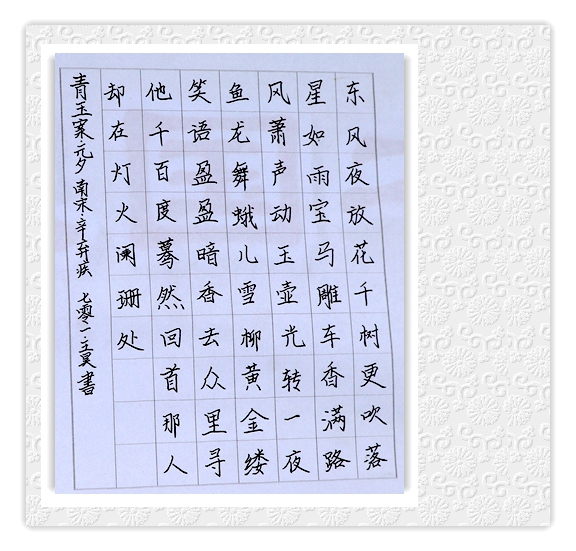 东风夜放花千树更吹落
星如雨宝马雕车香满路
风萧声动玉壶光转一夜
鱼龙舞蛾儿雪柳黄金缕
笑语盈盈暗香去众里寻
他千百度蓦然回首那人
却在灯火阑珊处
青玉案·元夕 南宋·辛弃疾 七零一·立昊書